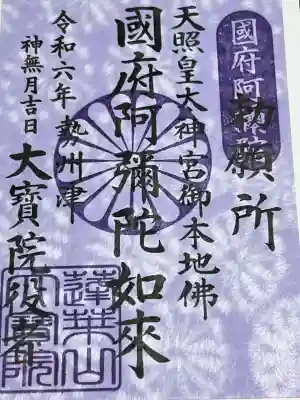 國府阿彌陀
勅願所
天照皇大神宮御本地佛
國府阿彌陀如來
令和六年 勢州津
神無月吉日 大寶院役者
蓮華山
大寶院